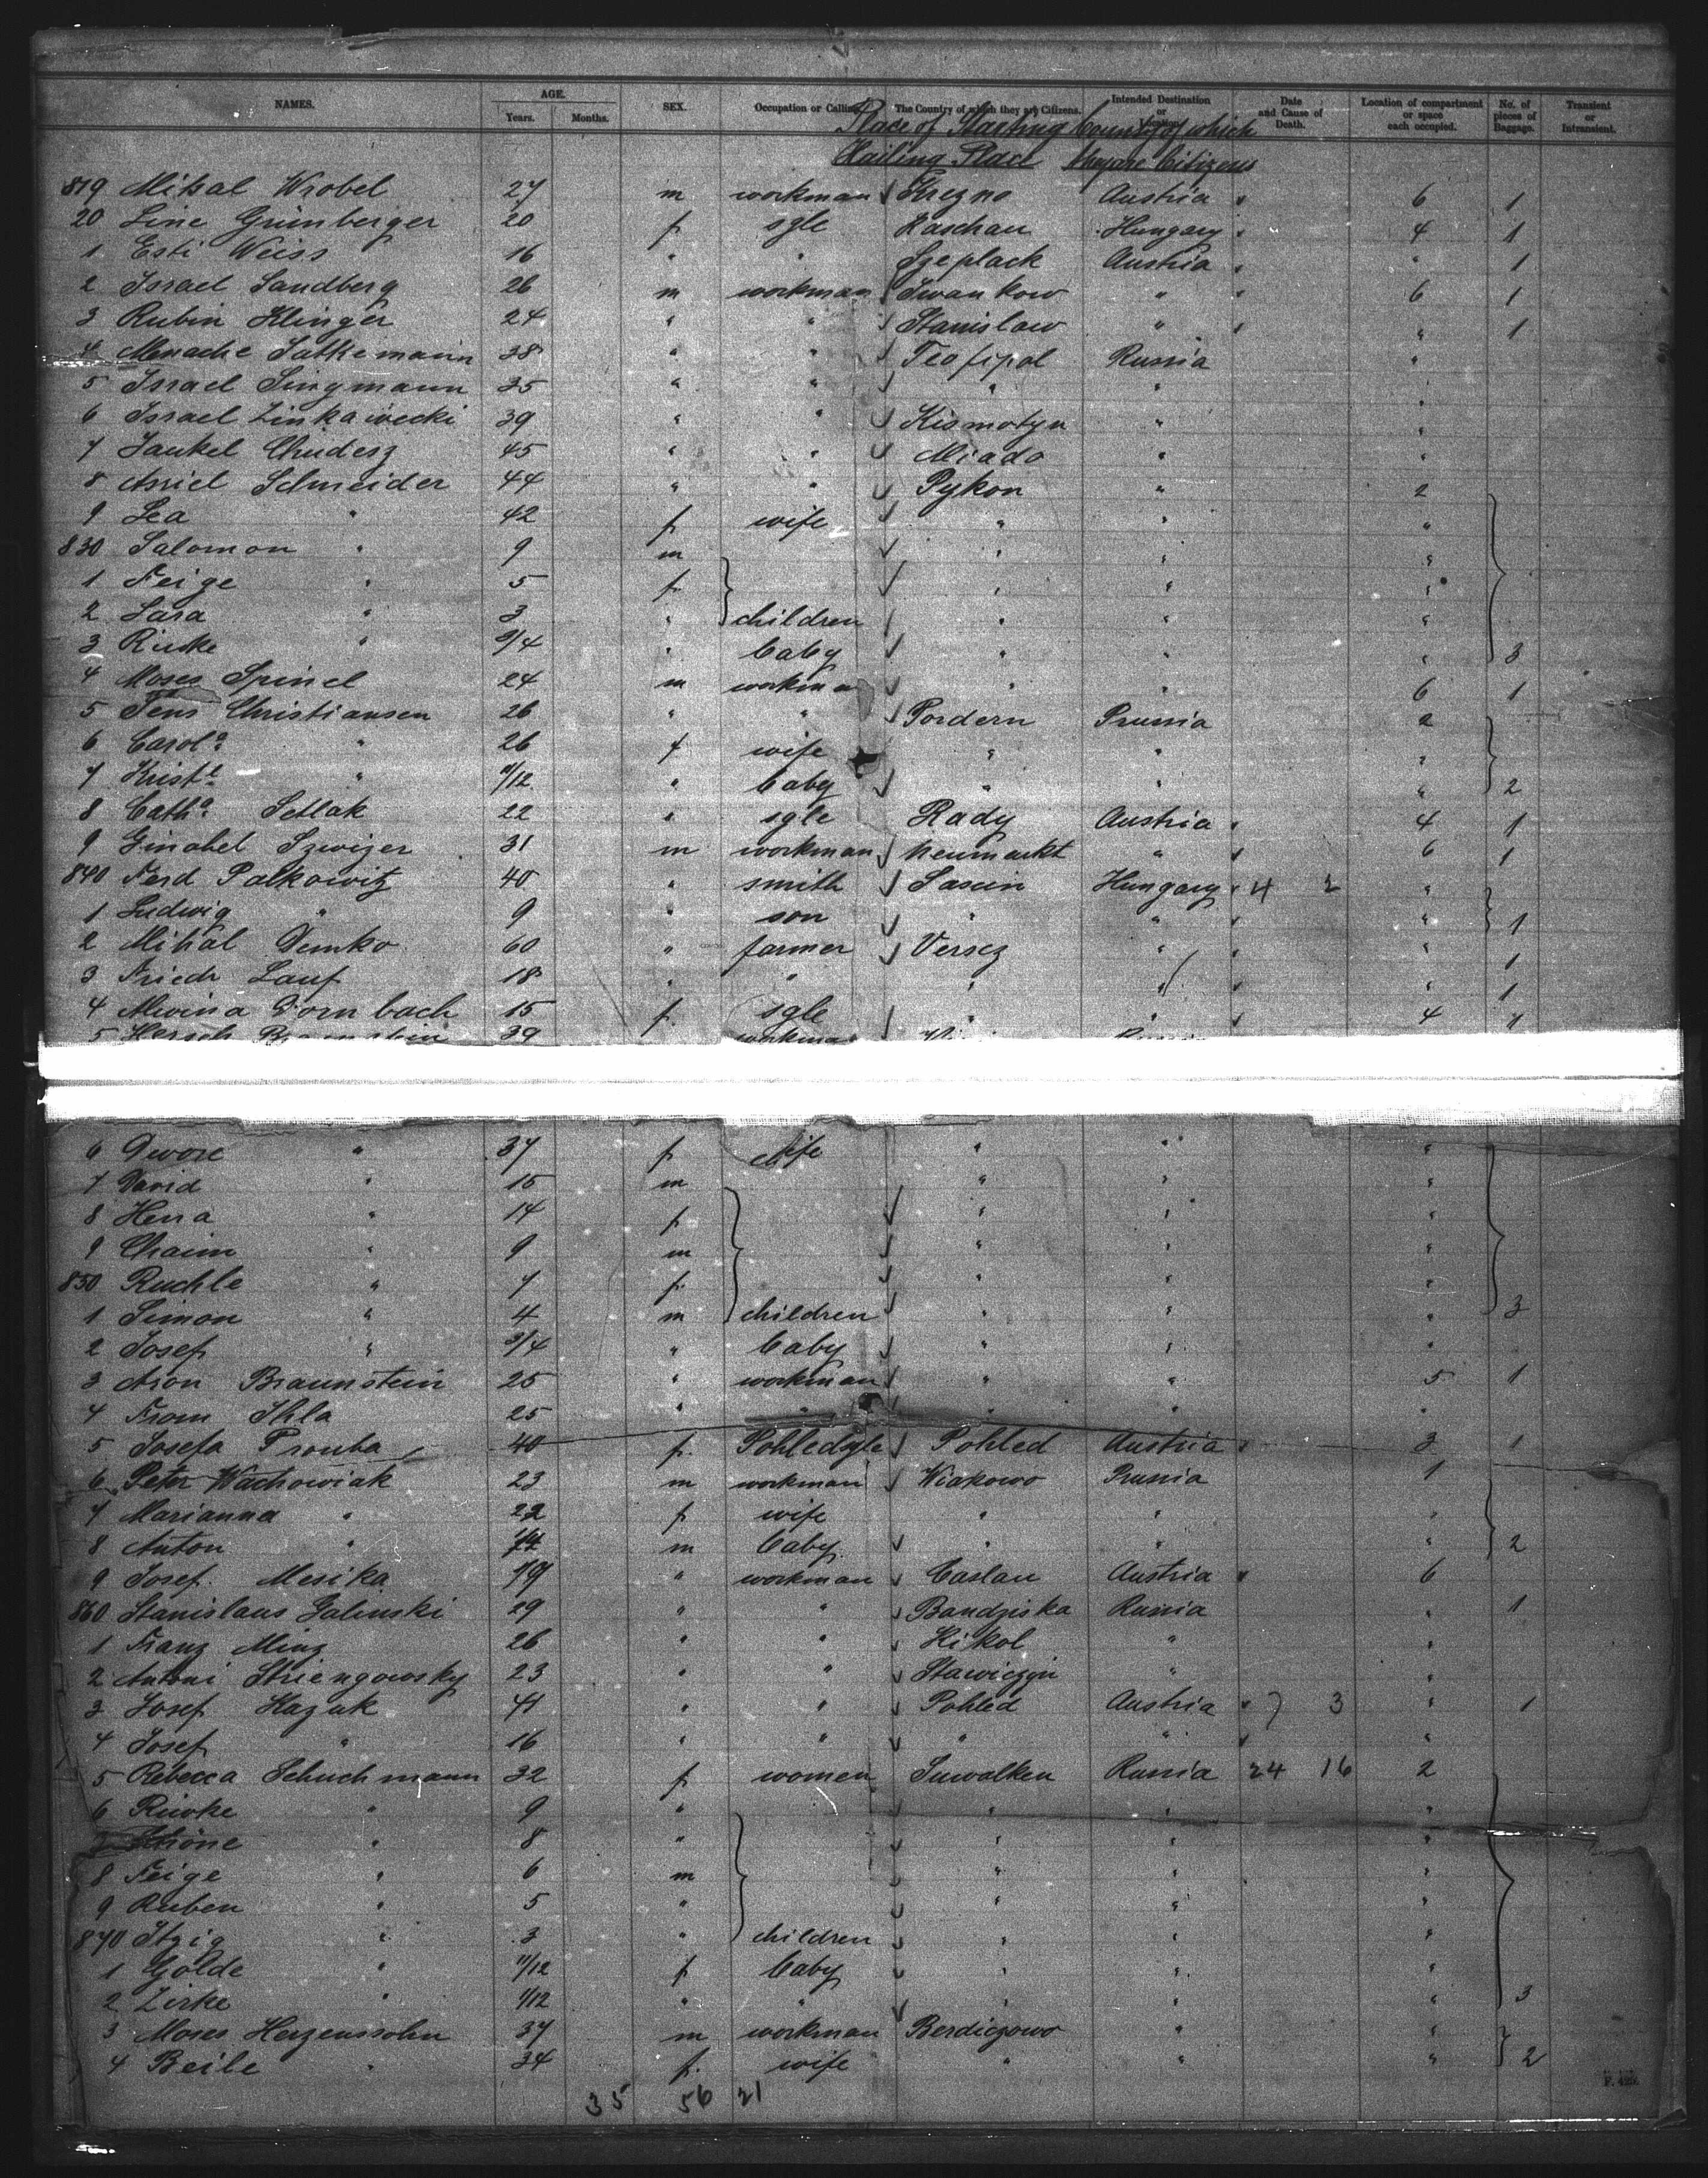 NAMES. AGE. Years. Months. SEX. Occupation or Calling. The Country of which they are Citizens. Intended Destination or Location. Date and Cause of Death. Location of compartment or space each occupied. No. of pieces of Baggage. Transient or Intransient.
Place of Starting Country of which
Hailing Place they are Citizens
819 Mihal Wrobel 27 m workman Austria 6 1
20 Line Grünberger 20 f. sgle Kaschau Hungary 4 1
1 Esti Weiss 16 " " Szeplack Austria " 1
2 Israel Sandberg 26 m workman Iwankow " 6 1
3 Rubin Klinger 24 " " Stanislaw " " 1
4 Menache Satkemann 38 " " Teofipol Russia "
5 Israel Singmann 35 " " " " "
6 Israel Zinkawecki 39 " " Kismotyn " "
7 Jankel Chudesz 45 " " Miado " "
8 Asriel Schneider 44 " " Pykon " 2
9 Lea " 42 f. wife " " "
830 Salomon " 9 m " " "
1 Feige " 5 f. " " "
2 Sara " 3 " children " " "
3 Riwke " 3/4 " baby " " " 3
4 Moses Spinel 24 m workman " " 6 1
5 Jens Christiansen 26 " " Pordern Prussia 2
6 Carola " 26 f wife " " "
7 Kriste " 11/12 " baby " " " 2
8 Catha Setlak 22 " sgle Rady Austria 4 1
9 Ginabel Szwizer 31 m workman Neumarkt " 6 1
840 Ferd Palkowitz 40 " smith Sasin Hungary 4 2 "
1 Ludwig " 9 " son " " " 1
2 Mihal Demko 60 " farmer Versez " " 1
3 Friedr Lauf 18 " " " " " 1
4 Alwina Dornbach 15 f. sgle " " 4 1
5 Hersch Braunstein 39 workman Russia
6 Dwore " 37 f. wife " " "
7 David " 15 m " " "
8 Hena " 14 f. " " "
9 Chaim " 9 m " " "
850 Ruchle " 7 f. " " "
1 Simon " 4 m children " " " 3
2 Josef " 3/4 " baby " " "
3 Aron Braunstein 25 " workman " " 5 1
4 From Ihla 25 " " " " "
5 Josefa Prouba 40 f. sgle Pohled Austria 3 1
6 Peter Wachowiak 23 m workman Wiakowo Prussia 1
7 Marianna " 22 f. wife " " "
8 Anton " m baby " " " 2
9 Josef Mesika 19 " workman Caslau Austria 6
860 Stanislaus Galinski 29 " " Bandziska Russia " 1
1 Franz Minz 26 " " Kikol " "
2 Antoni Striengowsky 23 " " Stawiczyn " "
3 Josef Kazak 41 " " Pohled Austria 3 " 1
4 Josef " 16 " " " " "
5 Rebecca Schuchmann 32 f. women Suwalken Russia 24 16 2
6 Riwke " 9 " " " "
7 Schöne " 8 " " " "
8 Feige " 6 m " " "
9 Ruben " 5 " " " "
870 Itzig " 3 " children " " "
1 Golde " 11/12 f. baby " " "
2 Zirke " 1/12 " " " " " 3
3 Moses Herzenssohn 37 m workman Berdiczowo " "
4 Beile " 34 f. wife " " " 2
35 56 21